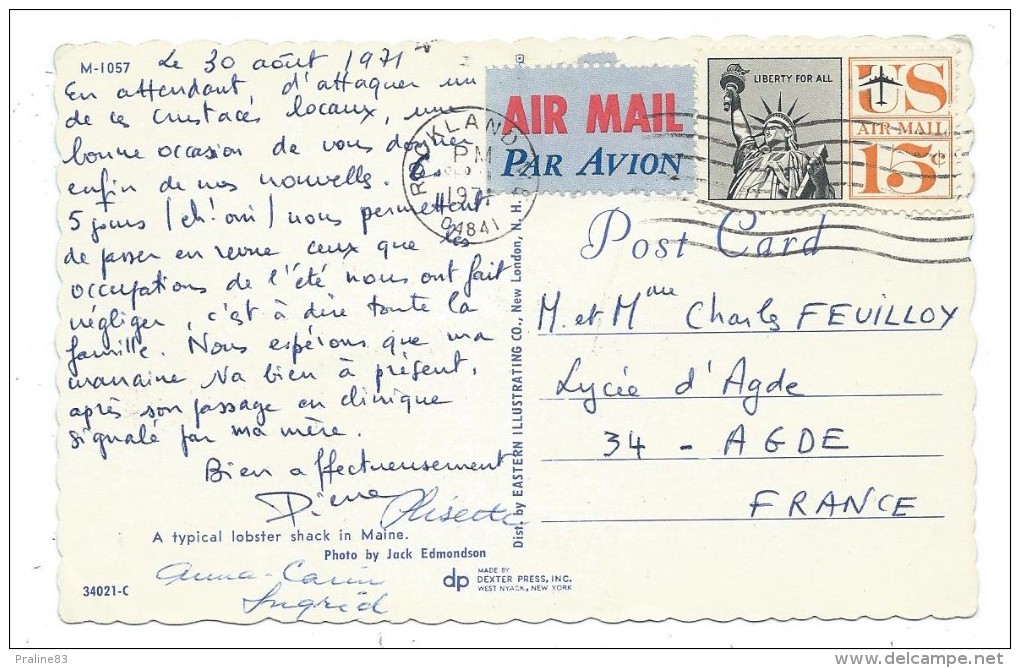 M-1057
Le 30 août 1971
En attendant, d'attaquer un
de ces crustacés locaux, une
bonne occasion de vous donner
enfin de nos nouvelles.
5 jours (eh! oui) nous permettent
de passer en revue ceux que les
occupations de l'été nous ont fait
négliger, c'est à dire toute la
famille. Nous espérons que ma
marraine va bien à présent,
après son passage en clinique
signalé par ma mère.
Bien affectueusement
Pierre
Lisette
A typical lobster shack in Maine.
Photo by Jack Edmondson
Anna-Carin
Ingrid
34021-C
dp
MADE BY
DEXTER PRESS, INC.
WEST NYACK, NEW YORK
Dist. by EASTERN ILLUSTRATING CO., New London, N.H.
AIR MAIL
PAR AVION
ROCKLAND
PM
1971
04841
LIBERTY FOR ALL
US
AIR MAIL
15c
Post Card
M. et Mme Charles FEUILLOY
Lycée d'Agde
34 - AGDE
FRANCE
Praline83
http://www.delcampe.net